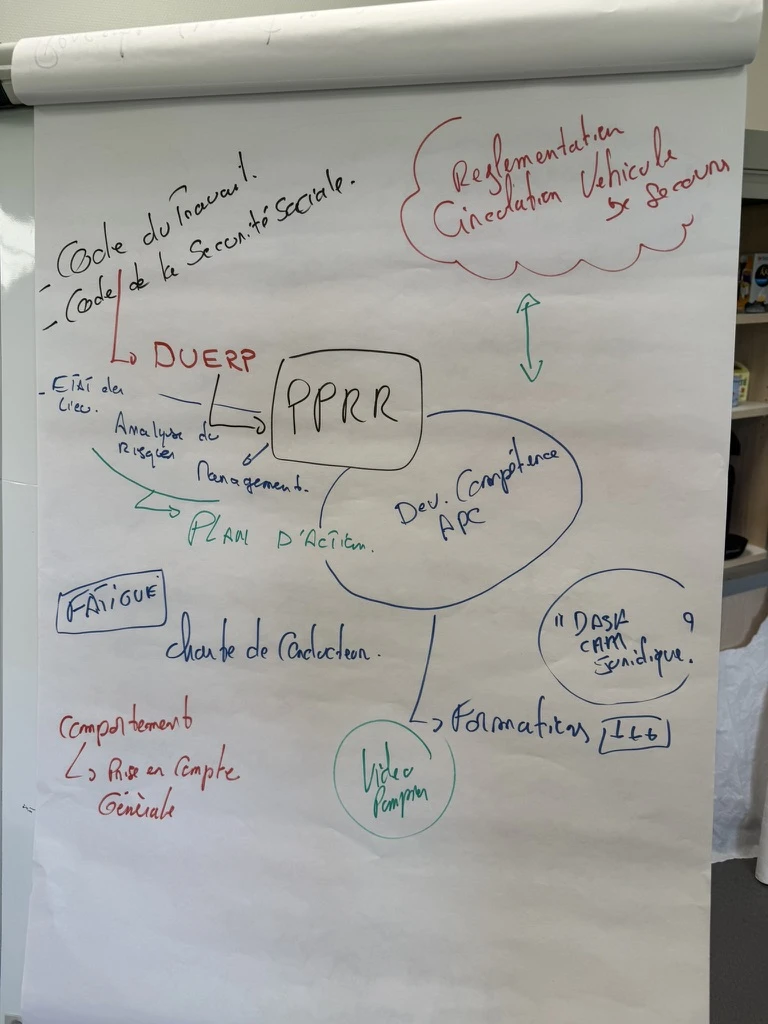 - Code du Travail.
- Code de la Sécurité Sociale.
Reglementation
Circulation Véhicule
de Secours
DUERP
PPRR
- ETAT des
lieu.
Analyse du
Risques
Management.
PLAN D'ACTION.
Dev. Compétence
APC
FATIGUE
charte de Conducteur.
"DASH
CAM
Juridique.
Comportement
Prise en Compte
Générale
Formations
Video
Pompier